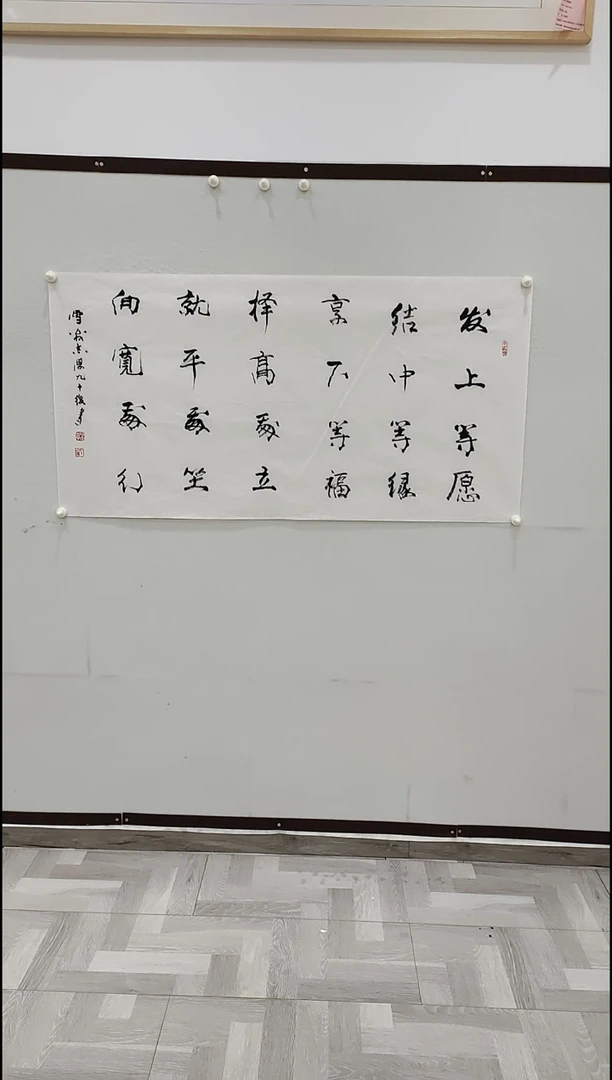 发上等愿
结中等缘
享下等福
择高处立
就平处坐
向宽处行